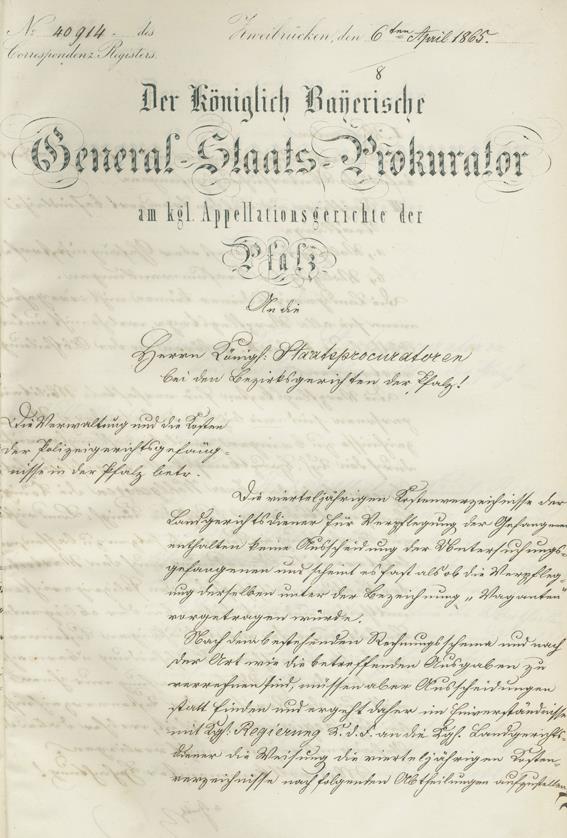 No 40914. des
Correspondenz Registers.
Zweibrücken, den 6ten April 1865.
8
Der Königlich Bayerische
General-Staats-Prokurator
am kgl. Appellationsgerichte der
Pfalz
An die
Herrn Königl. Staatsprocuratoren
bei den Bezirksgerichten der Pfalz!
Die Verwaltung und die Kosten
der Polizeigerichtsgefäng-
nisse in der Pfalz betr.
Die vierteljährigen Kostenverzeichnisse der
Landgerichtsdiener für Verpflegung der Gefangenen
enthalten keine Ausscheidung der Untersuchungs-
gefangenen und scheint es fast als ob die Verpfleg-
ung derselben unter der Bezeichnung „Vaganten"
vorgetragen würde.
Nach dem bestehenden Rechnungsschema und nach
der Art wie die betreffenden Ausgaben zu
verrechnen sind, müssen aber Ausscheidungen
statt finden und ergeht daher im Einverständnisse
mit Kgl. Regierung K. d. I. an die Kgl. Landgerichts-
diener die Weisung die vierteljährigen Kosten-
verzeichnisse nach folgenden Abtheilungen aufzustellen